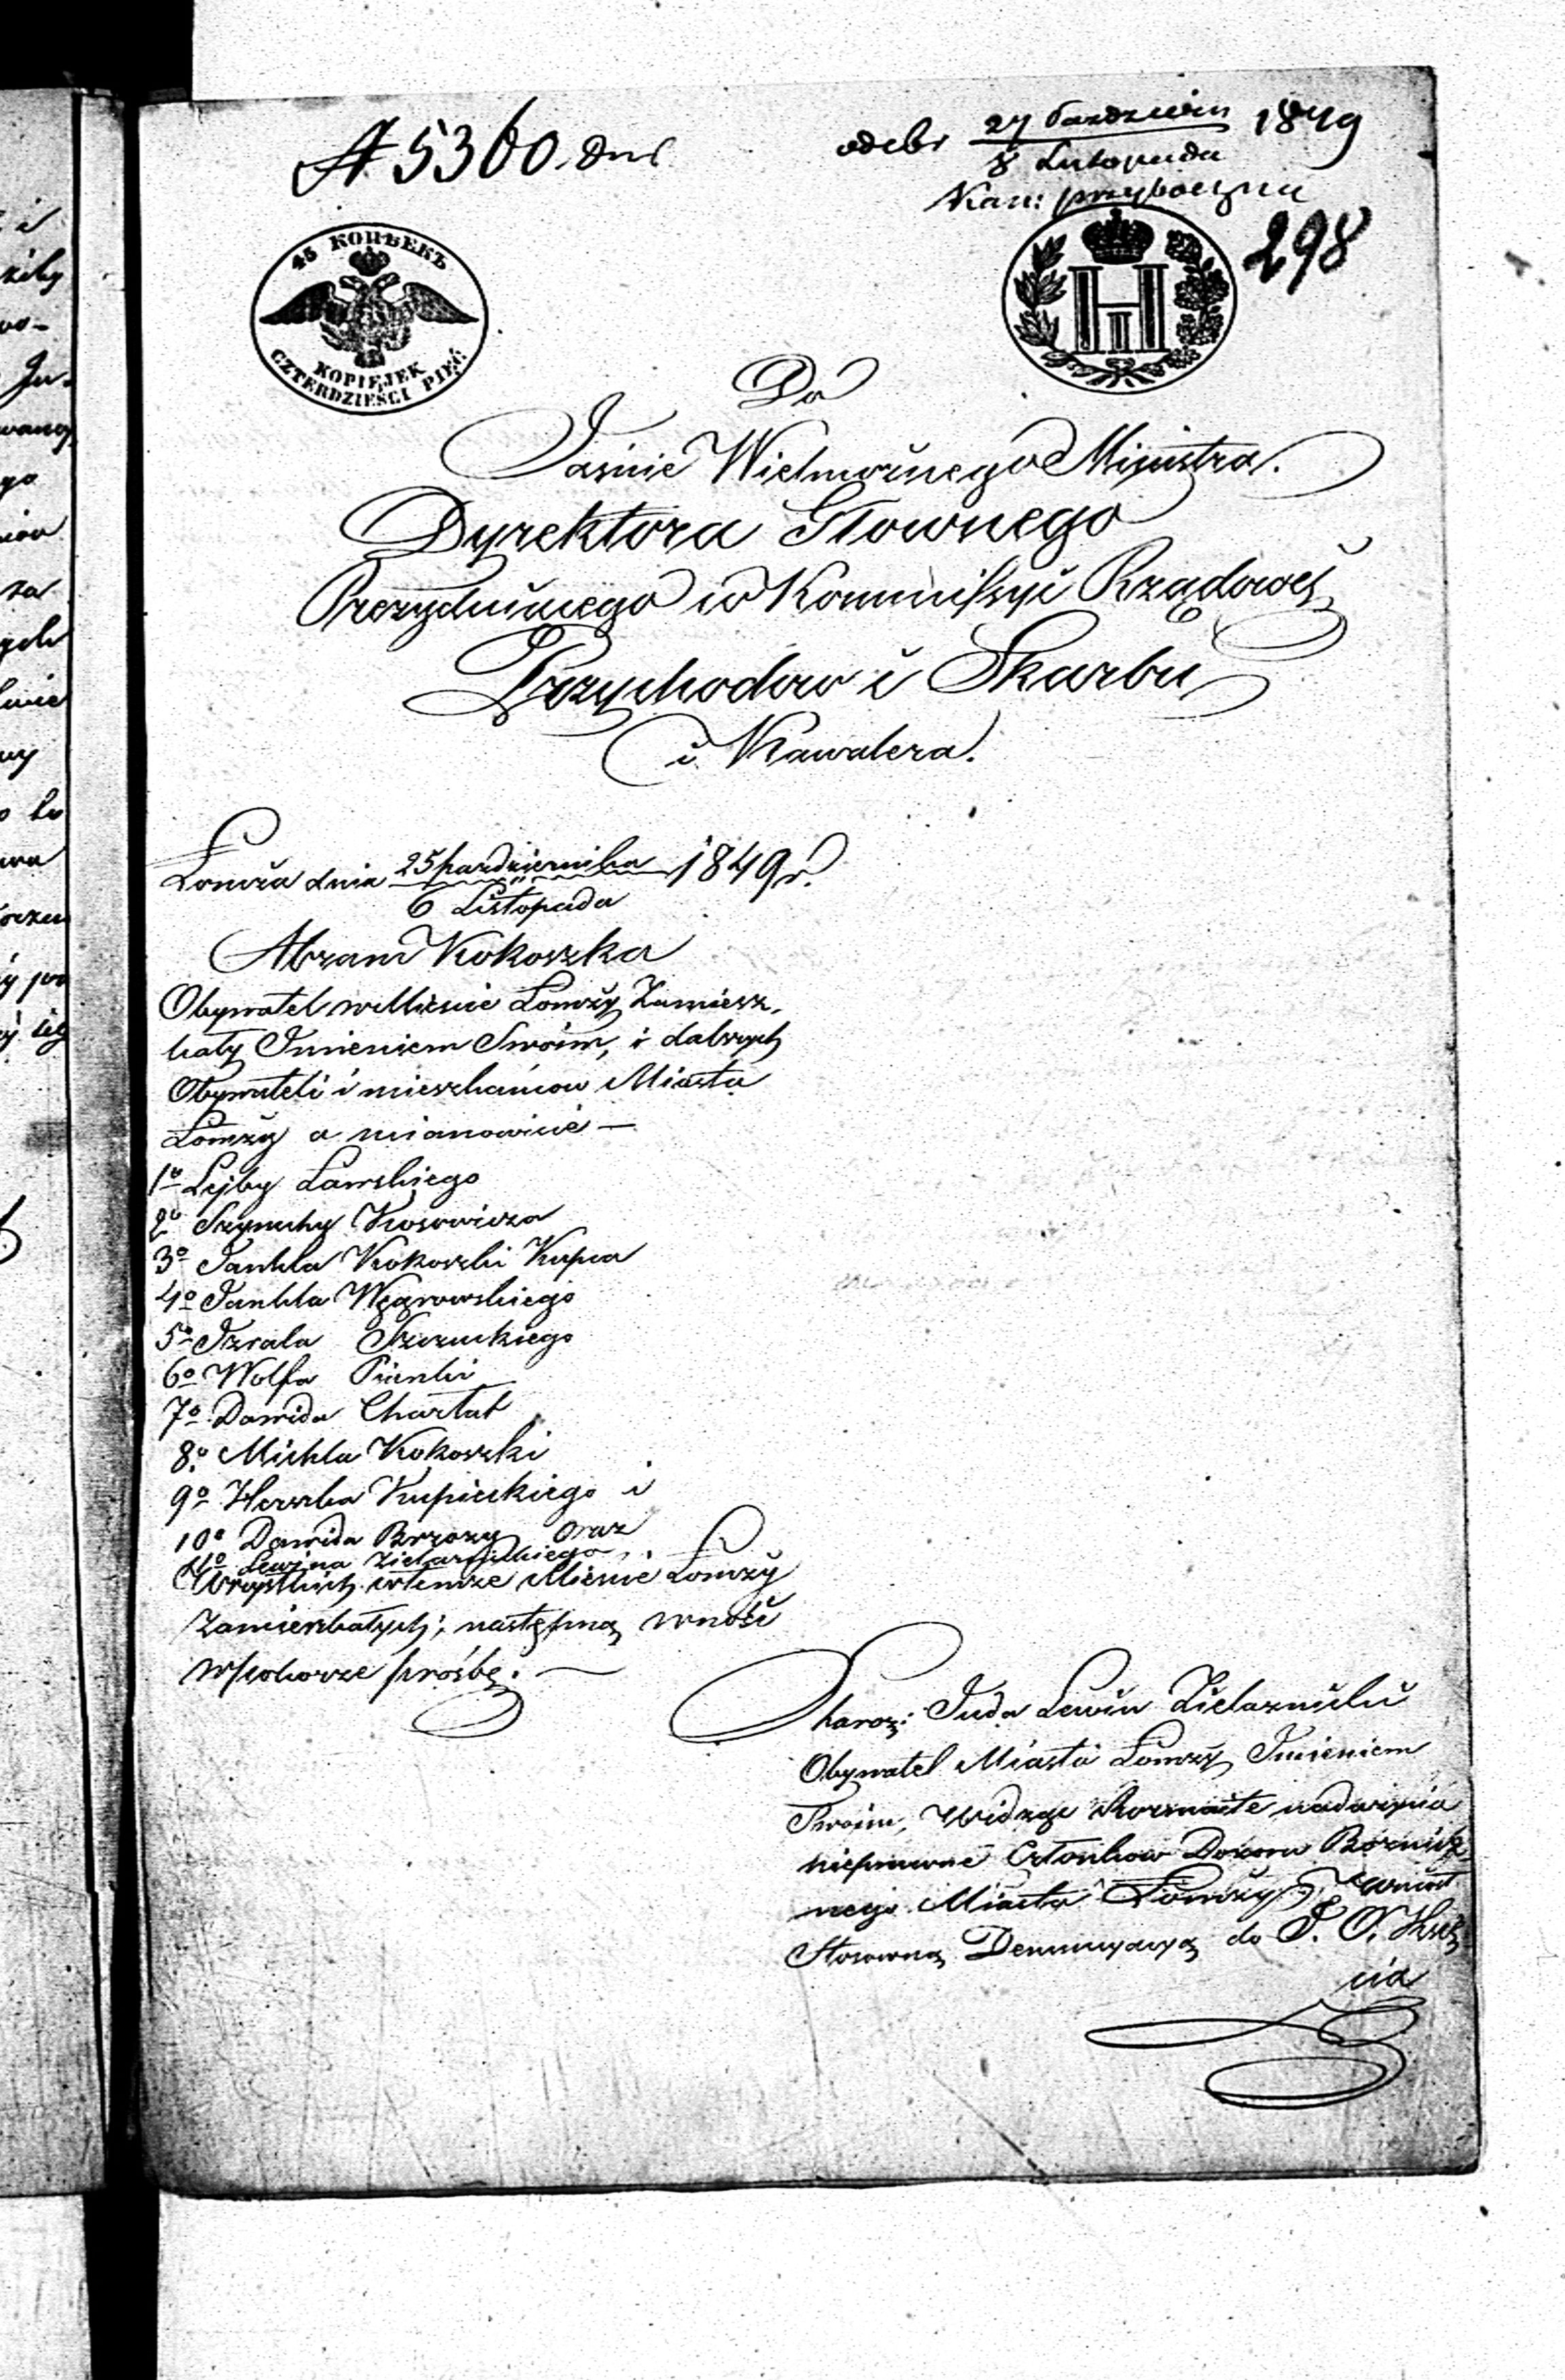 A 5360 dn
odebr 27 Październ 1849
8 Listopada
Kan: przyboczna
298
45 КОПѢЕКЪ
KOPIEJEK
CZTERDZIEŚCI PIĘĆ
Do
Jaśnie Wielmożnego Ministra.
Dyrektora Głownego
Prezydującego w Kommissyi Rządowej
Przychodow i Skarbu
i Kawalera.
Łomża dnia 25 Października 1849 r.
6 Listopada
Abram Kokoszka
Obywatel w Mieście Łomży Zamiesz-
kały Imieniem Swoim, i dalszych
Obywateli i mieszkańcow Miasta
Łomży a mianowicie —
1o Lejby Ławskiego
2o Kosowicza
3o Jankla Kokoszki Kupca
4o Jankla Węgrowskiego
5o Izraela Szczuckiego
6o Wolfa
7o Dawida Chartat
8o Michla Kokoszki
9o Herszka Kupieckiego i
10o Dawida Brzozy oraz
11o Lewina Zielaznickiego
Wszystkich w temże Mieście Łomży
Zamieszkałych; następną wnosi
w pokorze prośbę. —
Juda Lewin
Obywatel Miasta Łomży Imieniem
Swoim, Widząc Rozmaite nadużycia
nieprawne Członkow Dozoru Bożnicz-
nego Miasta Łomży,
Stosowną Denuncyacyą do J. O. Księ-
cia